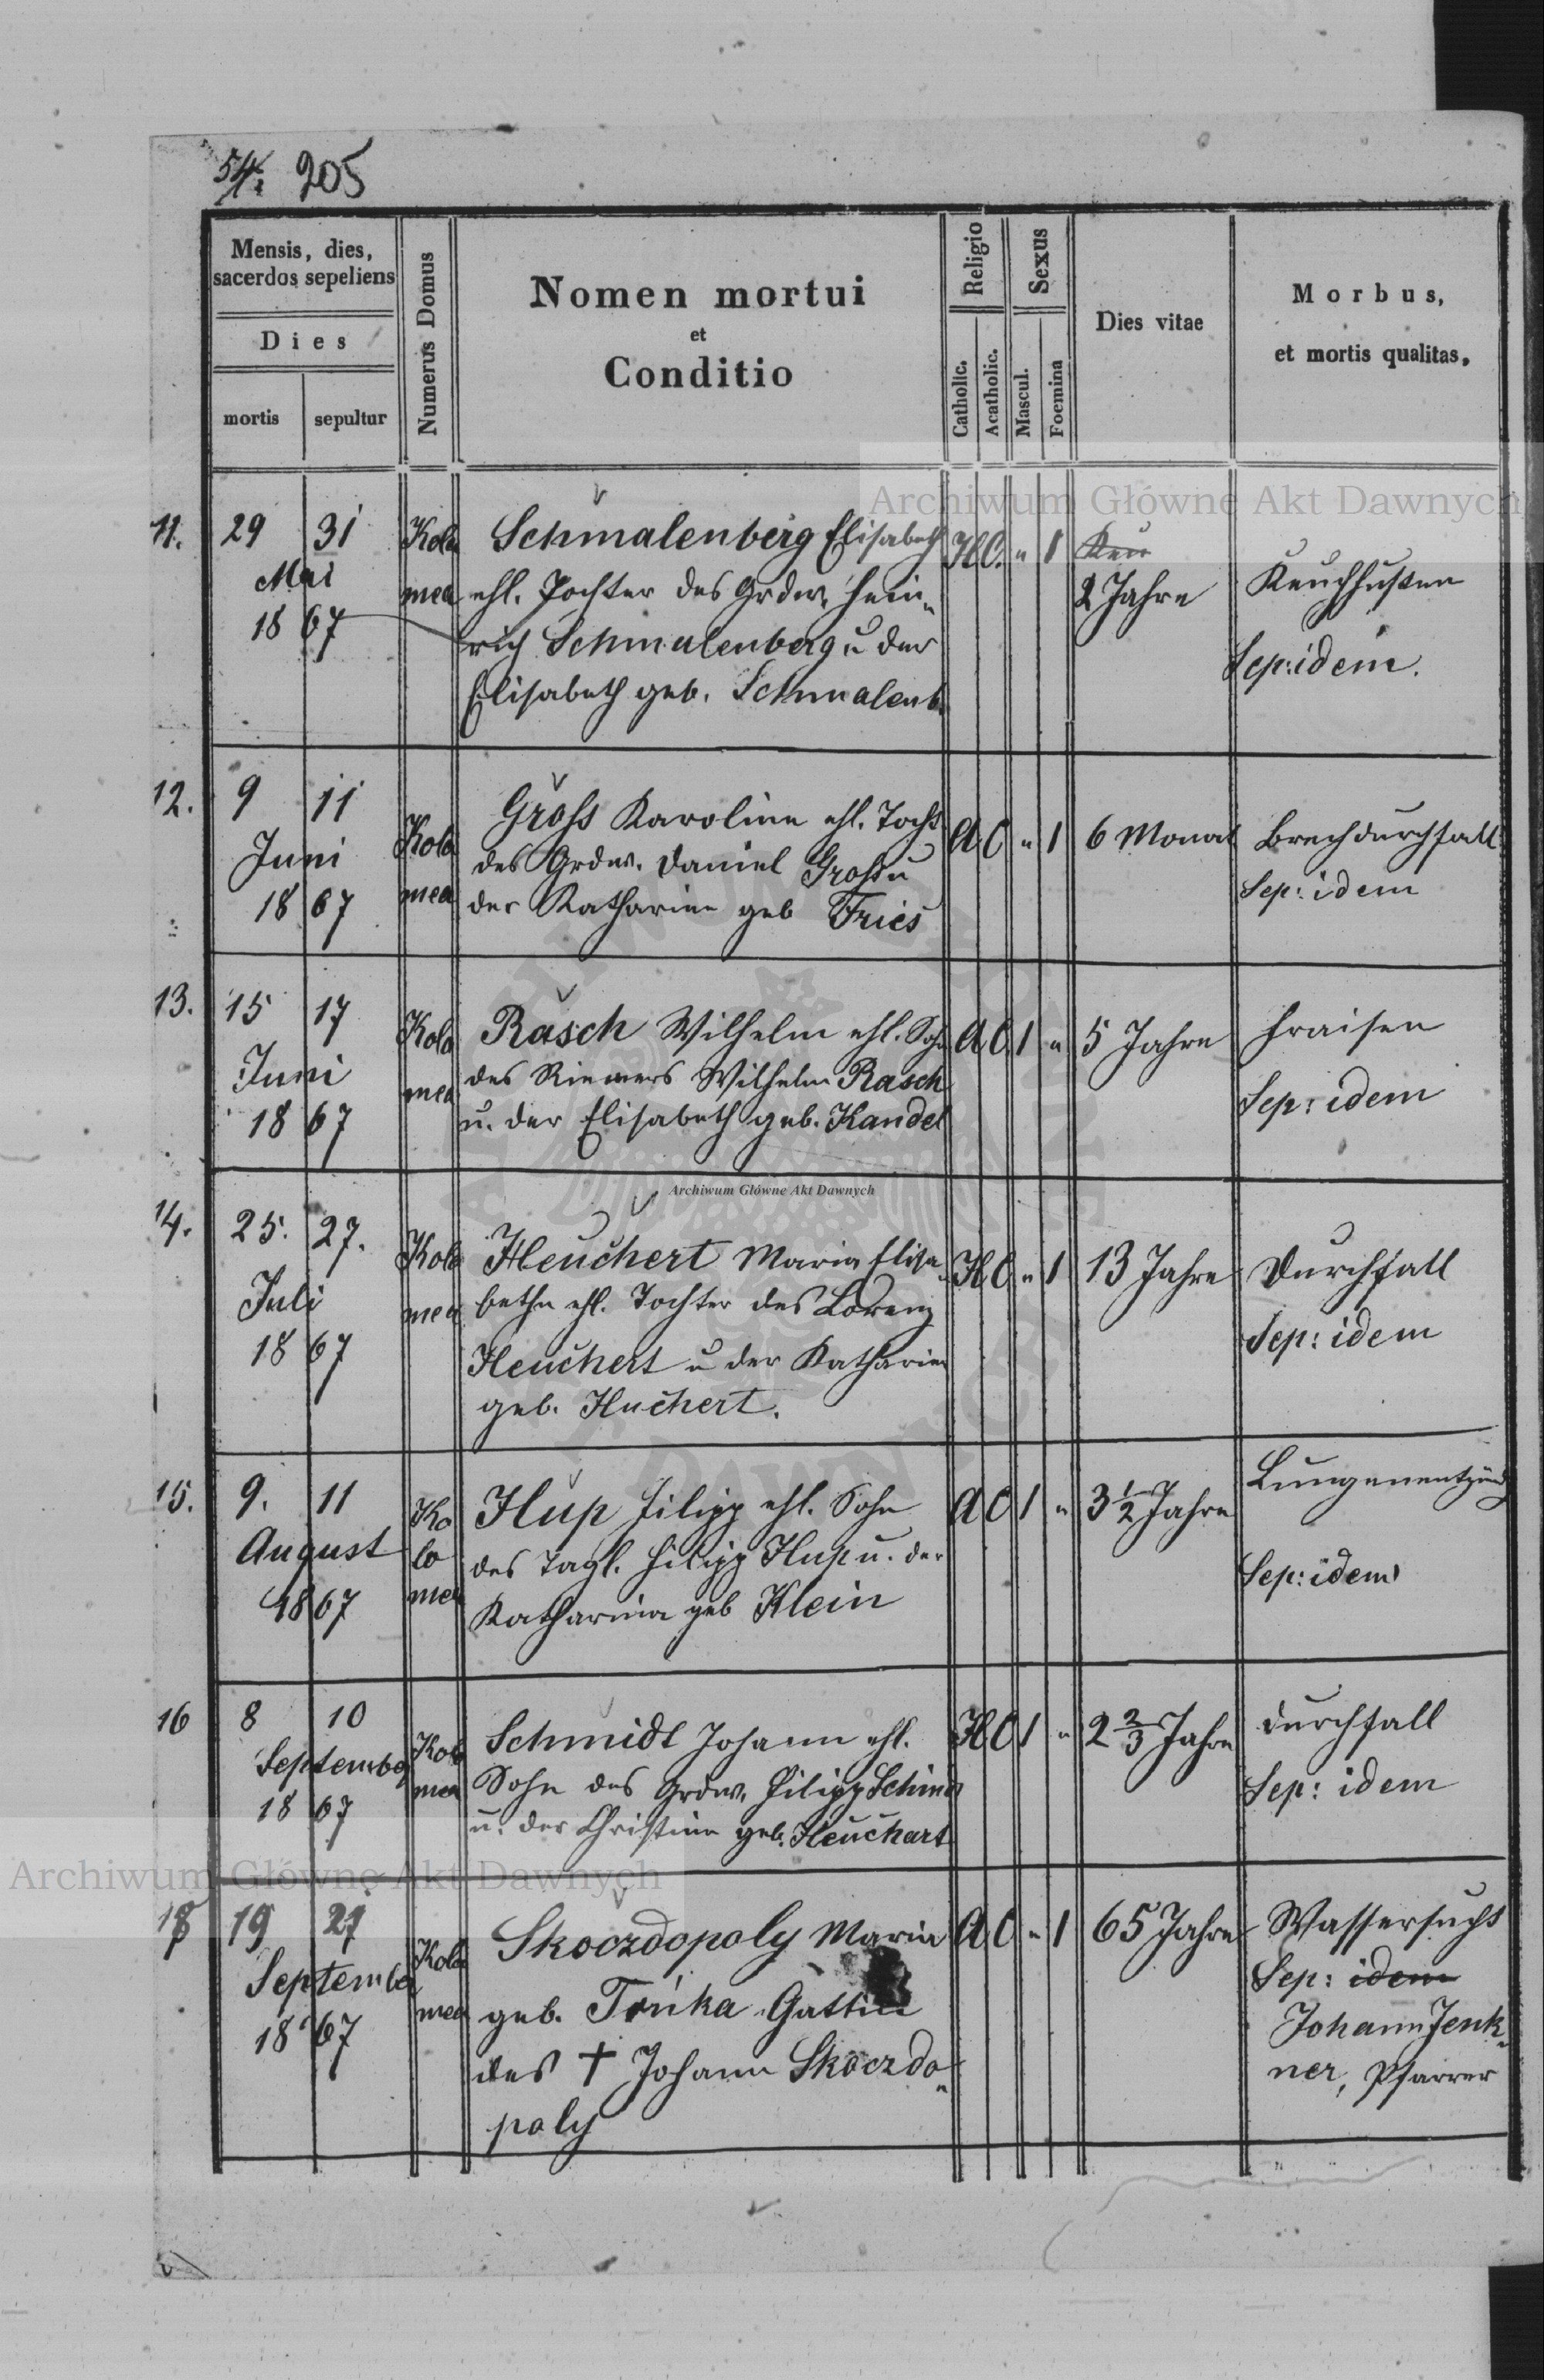 54. 205
Mensis, dies,
sacerdos sepeliens
Dies
mortis sepultur
Numerus Domus
Nomen mortui
et
Conditio
Religio
Catholic.
Acatholic.
Sexus
Mascul.
Foemina
Dies vitae
Morbus,
et mortis qualitas,
Archiwum Główne Akt Dawnych
11. 29 31
Mai
1867
Kolo
mea
Schmalenberg Elisabeth
ehl. Tochter des Grdw. Hein-
rich Schmalenberg u der
Elisabeth geb. Schmalenb.
H.C. " 1
2 Jahre
Keuchhusten
Sep: idem.
12. 9 11
Juni
1867
Kolo
mea
Gross Karoline ehl. Tocht
des Grdw. Daniel Gross u
der Katharine geb Fries
A C " 1
6 Monat
Brechdurchfall
Sep: idem
13. 15 17
Juni
1867
Kolo
mea
Rasch Wilhelm ehl. Sohn
des Riemers Wilhelm Rasch
u. der Elisabeth geb. Kandel
A C 1 "
5 Jahre
Fraisen
Sep: idem
Archiwum Główne Akt Dawnych
14. 25. 27.
Juli
1867
Kolo
mea
Heuchert Maria Elisa-
betha ehl. Tochter des Lorenz
Heuchert u der Katharina
geb. Huchert.
H C " 1
13 Jahre
Durchfall
Sep: idem
15. 9. 11
August
1867
Ko
lo
mea
Hup Filipp ehl. Sohn
des Tagl. Filipp Hup u. der
Katharina geb Klein
A C 1 "
3 1/2 Jahre
Lungenentzünd
Sep: idem
16 8 10
September
1867
Kolo
mea
Schmidt Johann ehl.
Sohn des Grdw. Filipp Schmid
u. der Christine geb. Heuchart
H C 1 "
2 2/3 Jahre
Durchfall
Sep: idem
Archiwum Główne Akt Dawnych
17 19 21
September
1867
Kolo
mea
Skoczdopoly Maria
geb. Trnka Gattin
des † Johann Skoczdo-
poly
A C " 1
65 Jahre
Wassersucht
Sep: idem
Johann Jenk-
ner, Pfarrer